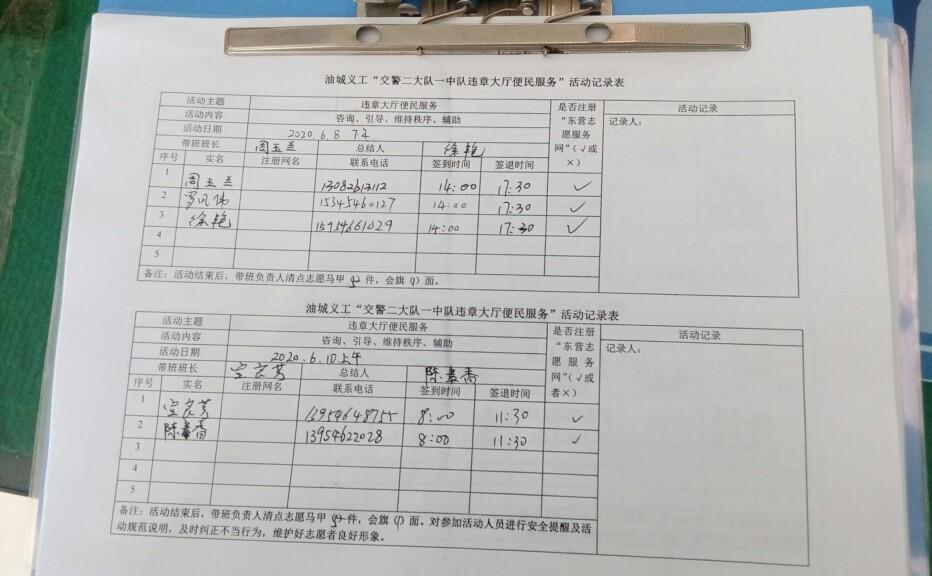 油城义工“交警二大队一中队违章大厅便民服务”活动记录表
活动主题 违章大厅便民服务 是否注册“东营志愿服务网”(√或×) 活动记录
活动内容 咨询、引导、维持秩序、辅助 记录人:
活动日期 2020.6.8 下午
带班班长 周玉兰 总结人 徐艳
序号 实名 注册网名 联系电话 签到时间 签退时间
1 周玉兰 13082613112 14:00 17:30 √
2 15345460127 14:00 17:30 √
3 徐艳 15954661029 14:00 17:30 √
4
5
备注:活动结束后,带班负责人清点志愿马甲 件,会旗(1)面。
油城义工“交警二大队一中队违章大厅便民服务”活动记录表
活动主题 违章大厅便民服务 是否注册“东营志愿服务网”(√或者×) 活动记录
活动内容 咨询、引导、维持秩序、辅助 记录人:
活动日期 2020.6.10上午
带班班长 总结人 陈 香
序号 实名 注册网名 联系电话 签到时间 签退时间
1 13954648755 8:00 11:30 √
2 陈 香 13954622028 8:00 11:30 √
3
4
5
备注:活动结束后,带班负责人清点志愿马甲 件,会旗(1)面。对参加活动人员进行安全提醒及活
动规范说明,及时纠正不当行为,维护好志愿者良好形象。